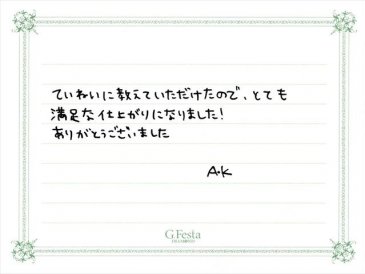 ていねいに教えていただけたので、とても
満足な仕上がりになりました!
ありがとうございました
A・K
G.Festa